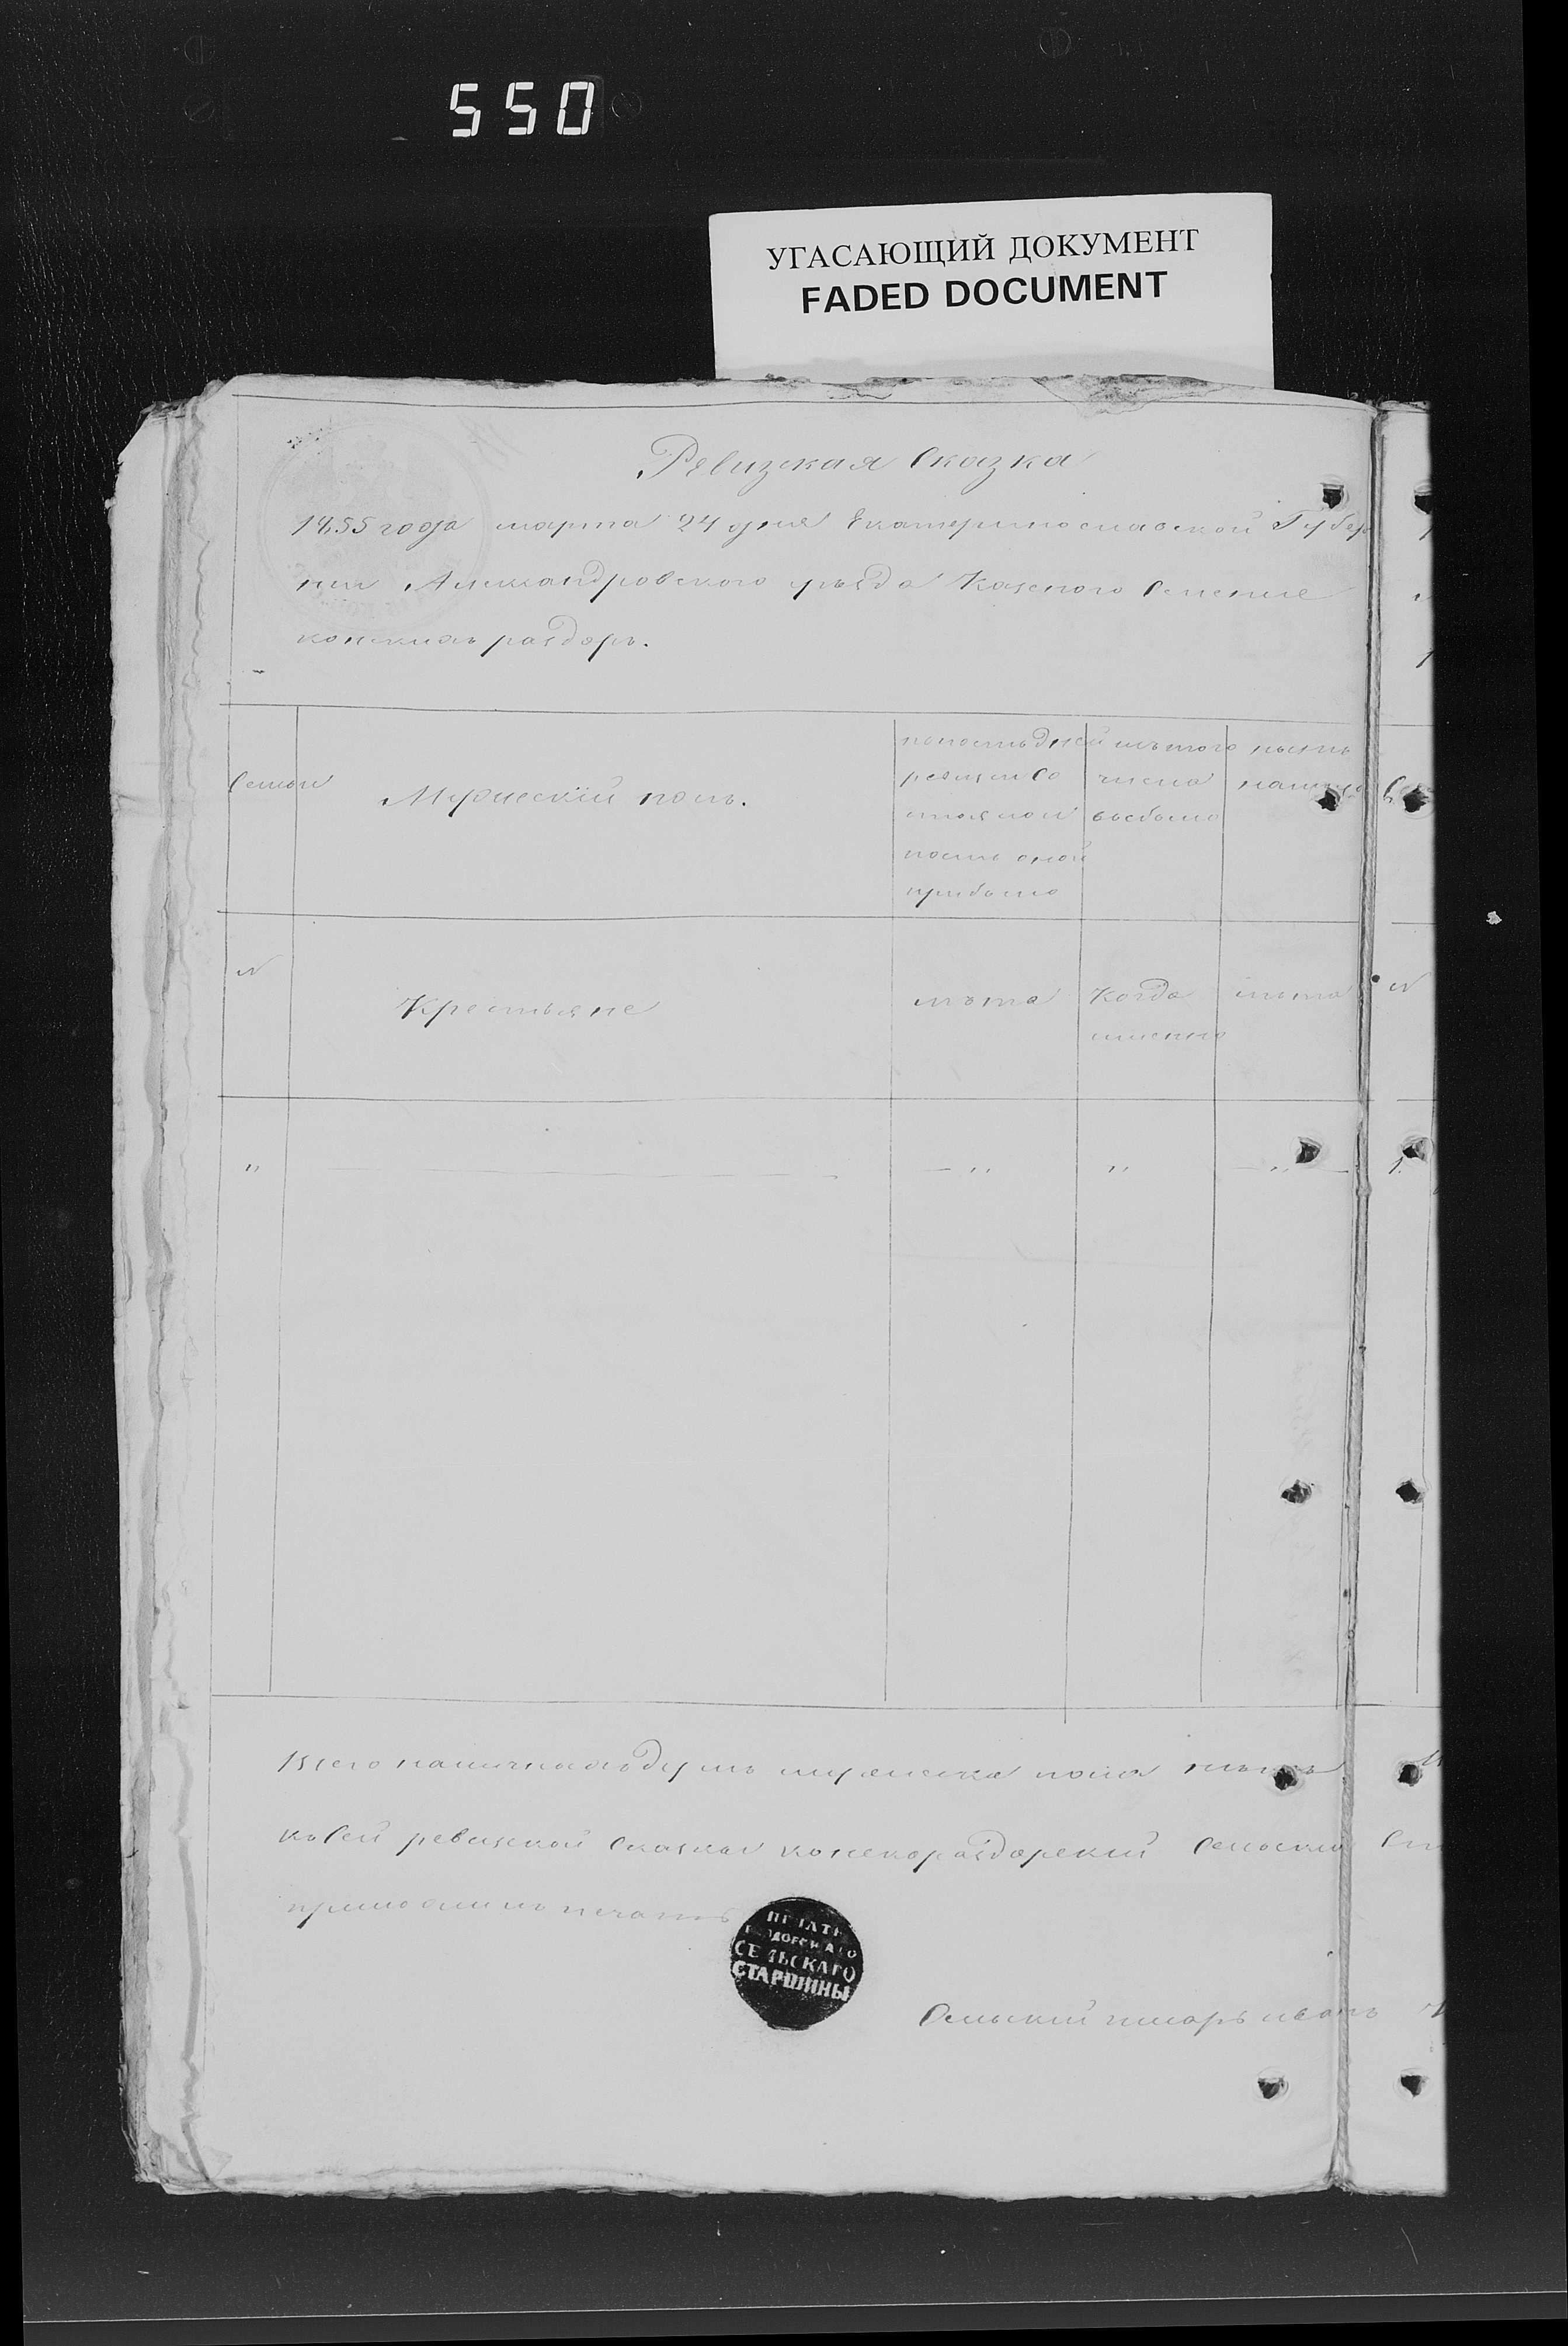 550
УГАСАЮЩИЙ ДОКУМЕНТ
FADED DOCUMENT
Ревизская Сказка
1855 года марта 24 дня Екатеринославской Губер
нии Александровского уезда Казеного Селение
конскихъ раздоръ.
Семьи
Мужескій полъ.
попоследней
ревизии Со
стояло и
после оной
прибыло
изътого
числа
выбыло
ныне
налицо
N
Крестьяне
лета
Когда
именно
лета
N
"
"
"
"
1.
Всего наличныхъ душъ мужеска пола нетъ
ксей ревизской Сказки конскораздорский Сельский
приложилъ печать
ПЕЧАТЬ
СЕЛЬСКАГО
СТАРШИНЫ
Сельский писарь иванъ